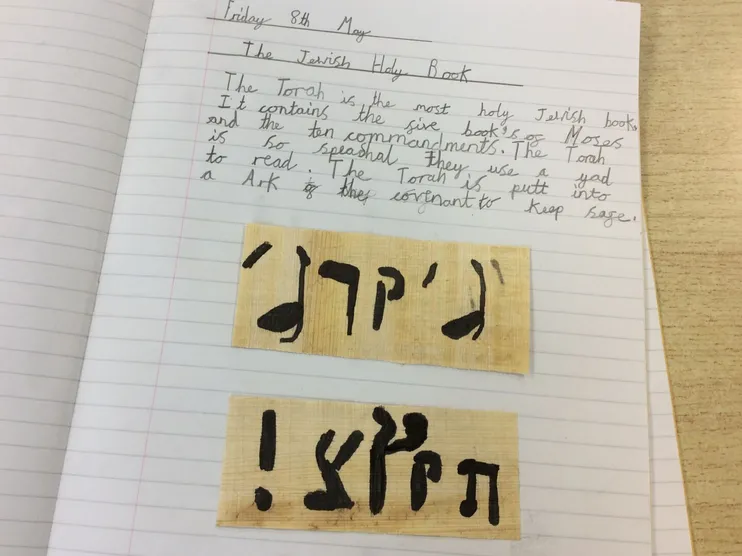 Friday 8th May
The Jewish Holy Book
The Torah is the most holy Jewish book.
It contains the five book's of Moses
and the ten commandments. The Torah
is so speashal they use a yad
to read. The Torah is putt into
a Ark of the covinant to keep safe.
ג'קרג'